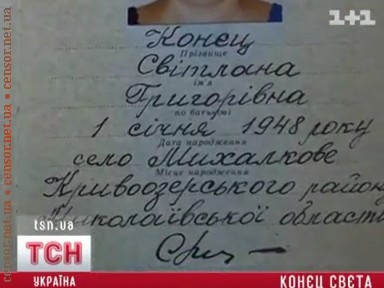 1+1
Конец
Прізвище
Світлана
ім'я
Григорівна
по батькові
1 січня 1948 року
Дата народження
село Михалкове
Місце народження
Кривоозерського району
Миколаївської області
tsn.ua
ТСН
УКРАЇНА
КОНЕЦ СВЕТА
censor.net.ua • censor.net.ua • censor.net.ua